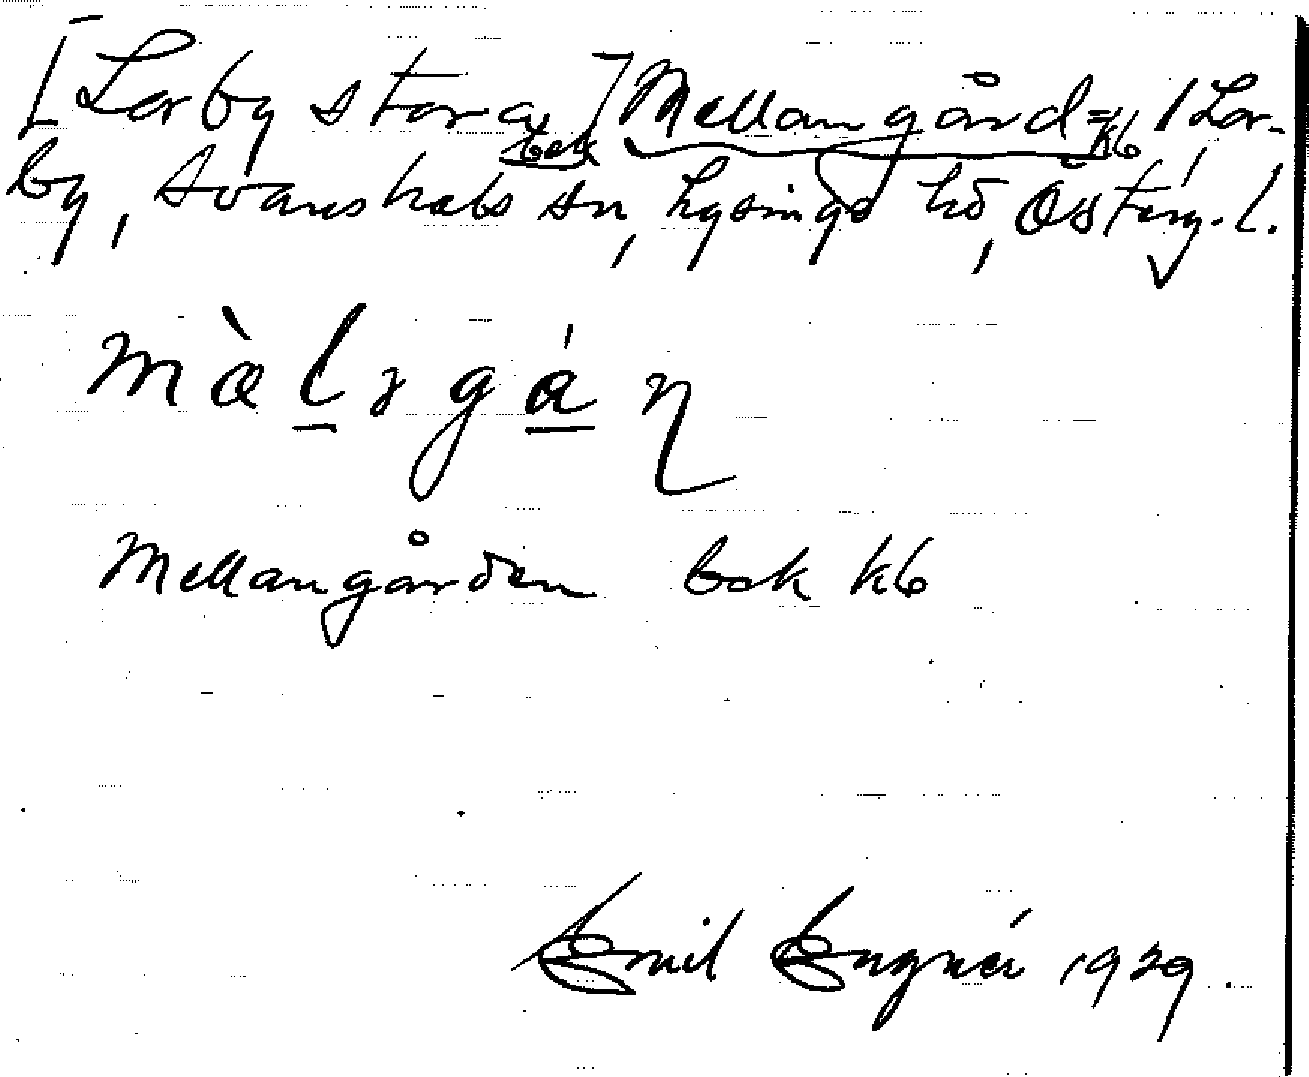 [Lorby stora bok] Mellangård kb / Lor-
by, Svanshals sn, Lysings hd, Österg. l.
mæ̀lɤgán
Mellangården bok kb
Emil Engnér 1929.